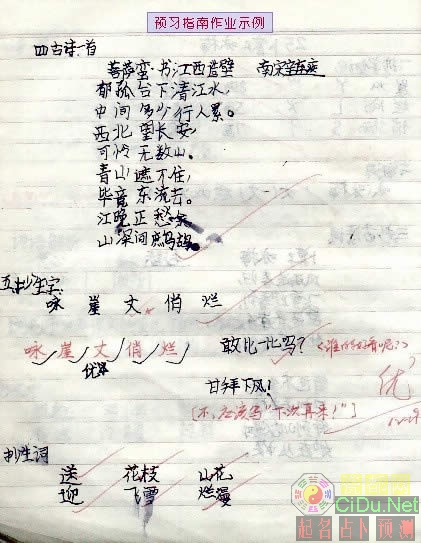 预习指南作业示例
四古诗一首
菩萨蛮·书江西造壁 南宋辛弃疾
郁孤台下清江水,
中间多少行人累。
西北望长安,
可怜无数山。
青山遮不住,
毕竟东流去。
江晚正愁余,
山深闻鹧鸪。
五、抄生字
咏 崖 丈 俏 烂
咏 崖 丈 俏 烂 敢比一比吗?<谁的好看呢?>
优
甘拜下风!
优
[不,应该写"下次再来!"]
抄生词
送 花枝 山花
迎 飞雪 烂漫
CiDu.Net
起名占卜预测